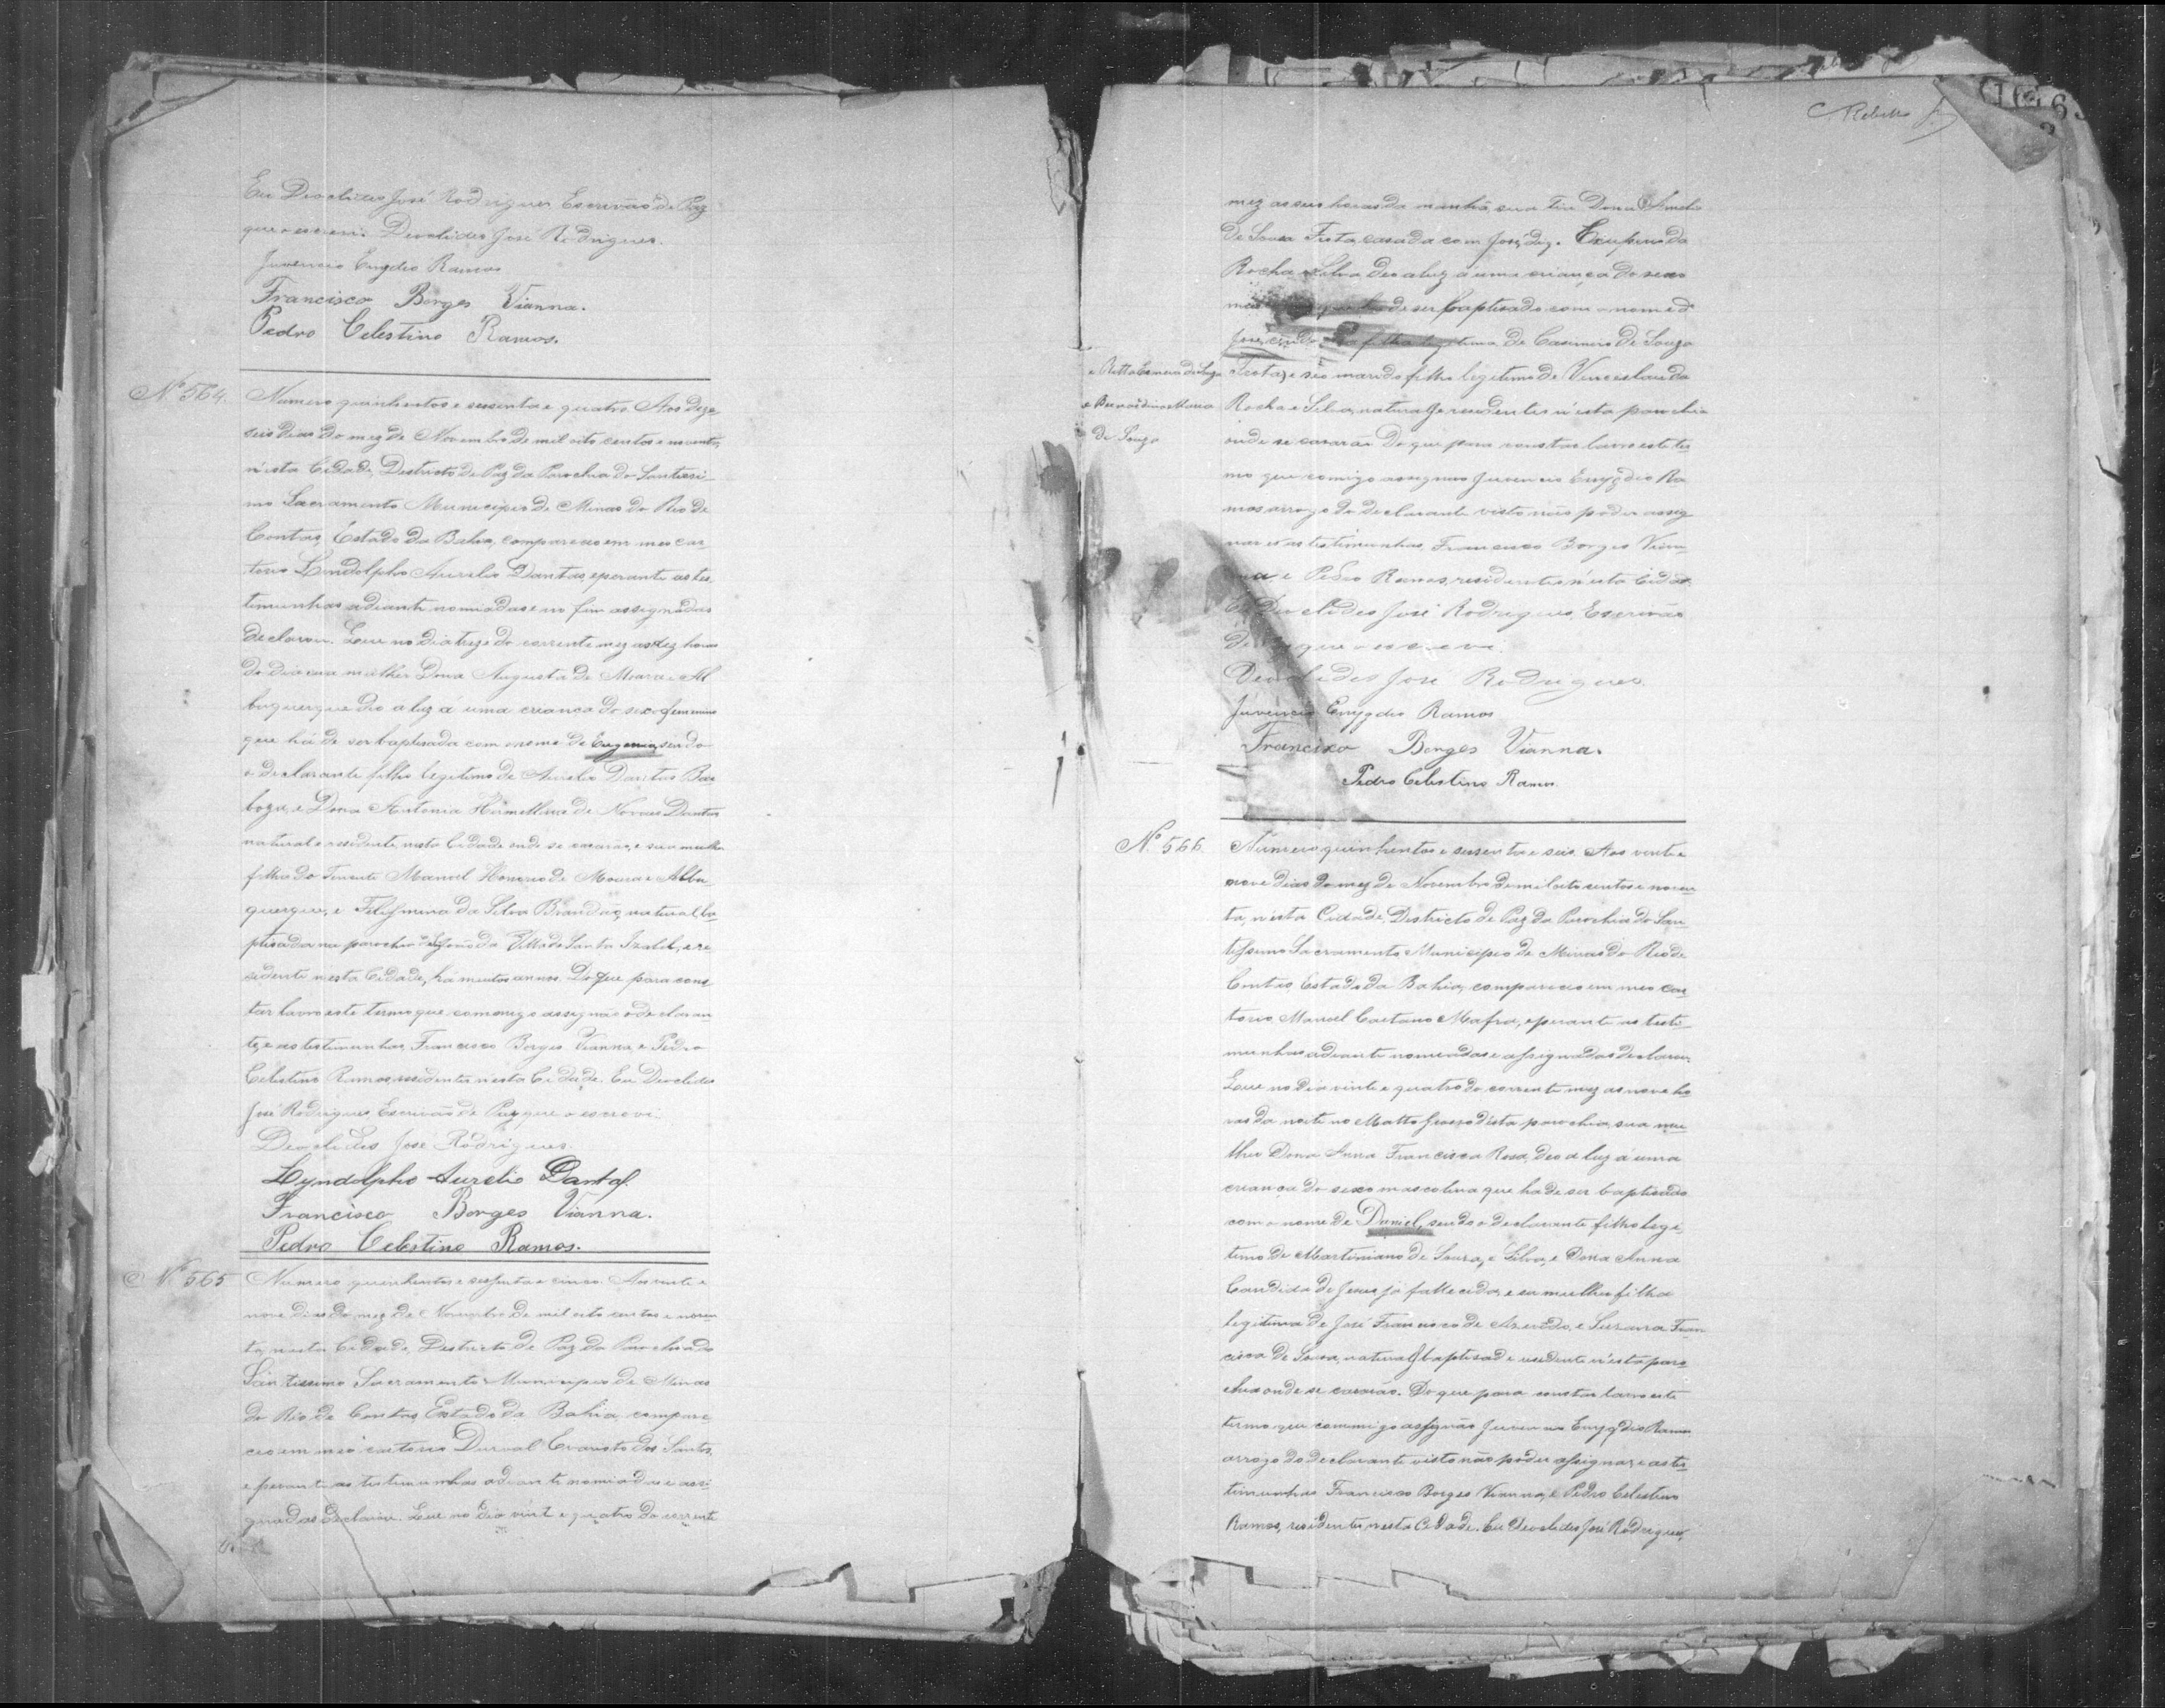 Eu Deoclides José Rodrigues Escrivão de Paz
que o escrevi. Deoclides José Rodrigues.
Juvencio Emygdio Ramos
Francisco Borges Vianna.
Pedro Celestino Ramos.
Nº 564.
Numero quinhentos e sessenta e quatro. Aos deze
seis dias do mez de Novembro de mil oito centos e noventa,
n'esta Cidade, Destricto de Paz da Parochia do Santissi
mo Sacramento Municipio de Minas do Rio de
Contas, Estado da Bahia, compareceo em meo car
torio Lindolpho Aurelio Dantas, e perante as tes
temunhas adiante nomiadas e no fim assignadas
declarou. Que no dia treze do corrente mez as dez horas
do dia sua mulher Dona Augusta de Moura e Al
buquerque deo a luz á uma creança do sexo femenino
que há de ser baptisada com o nome de Eugenia, sendo
o declarante filho legitimo de Aurelio Dantas Bar
boza, e Dona Antonia de Novaes Dantas
natural e residente nesta Cidade onde se casarão, e sua mulher
filha do Tenente Manoel Honorio de Moura e Albu
querque, e Felismina da Silva Brandão, natural, ba
ptisada na parochia de São João da Villa de Santa Izabel, e re
sidente n'esta Cidade, há muitos annos. Do que para cons
tar lavro este termo que commigo assignão o declaran
te, e as testimunhas, Francisco Borges Vianna, e Pedro
Celestino Ramos, residentes n'esta Cidade. Eu Deoclides
José Rodrigues Escrivão de Paz que o escrevi.
Deoclides José Rodrigues.
Lyndolpho Aurelio Dantas.
Francisco Borges Vianna.
Pedro Celestino Ramos.
Nº 565
Numero quinhentos e sessenta e cinco. Aos vinte e
nove dias do mez de Novembro de mil oito centos e noven
ta, nesta Cidade, Destricto de Paz da Parochia do
Santissimo Sacramento Municipio de Minas
do Rio de Contas, Estado da Bahia, compare
ceo em meo cartorio Durval Evaristo dos Santos,
e perante as testimunhas adiante nomiadas e assi
gnadas declarou. Que no dia vinte e quatro do corrente
C Rebello
mez as seis horas da manhã, sua tia Dona Amelia
de Souza casada com José
Rocha e Silva deo a luz á uma criança do sexo
de ser baptisado com o nome d
filha legitima de Casimiro de Souza
e Ritta de Souza
e Bernardina Maria
de Souza
e seo marido filho legitimo de Venceslau da
Rocha e Silva, natural e residentes n'esta parochia
onde se casarão. Do que para constar lavro este ter
mo que comigo assignão Juvencio Emygdio Ra
mos arrogo do declarante visto não poder assig
nar e as testimunhas, Francisco Borges Vian
na e Pedro Ramos, residentes n'esta Cidade
Eu Deoclides José Rodrigues Escrivão
de Paz que o escrevi.
Deoclides José Rodrigues.
Juvencio Emygdio Ramos
Francisco Borges Vianna.
Pedro Celestino Ramos
Nº 566
Numero quinhentos e sessenta e seis. Aos vinte e
nove dias do mez de Novembro de mil oito centos e noven
ta, n'esta Cidade, Districto de Paz da Parochia do San
tissimo Sacramento Municipio de Minas do Rio de
Contas, Estado da Bahia, compareceo em meo car
torio Manoel Caetano Mafra, e perante as testi
munhas adiante nomeadas e assignadas declarou.
Que no dia vinte e quatro do corrente mez as nove ho
ras da noite no Matto Grosso d'esta parochia, sua mu
lher Dona Anna Francisca Rosa, deo a luz á uma
creança do sexo mascolino que ha de ser baptisado
com o nome de Daniel, sendo o declarante filho legi
timo de Martiniano de Souza, e Silva, e Dona Anna
Candida de Jesus já fallecida, e sua mulher filha
legitima de José Francisco de Azevedo, e Suzana Fran
cisca de Souza, natural, baptisada e residente n'esta paro
chia onde se casarão. Do que para constar lavro este
termo que commigo assignão Juvencio Emygdio Ramos
arrogo do declarante visto não poder assignar, e as tes
timunhas Francisco Borges Vianna, e Pedro Celestino
Ramos, residentes nesta Cidade. Eu Deoclides José Rodrigues,